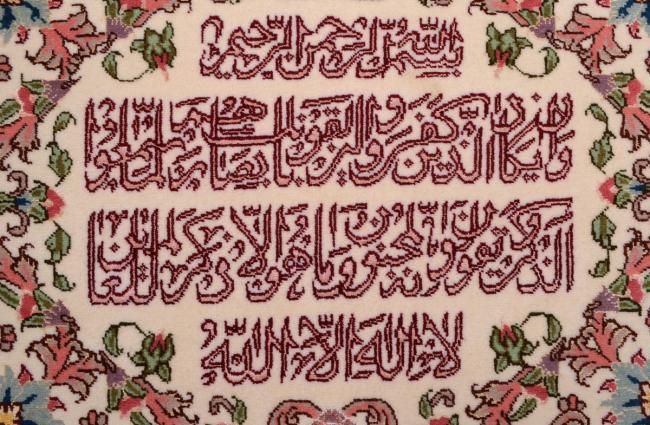 بسم الله الرحمن الرحيم
وان يكاد الذين كفروا ليزلقونك بابصارهم لما سمعوا
الذكر ويقولون انه لمجنون وما هو الا ذكر للعالمين
لا اله الا الله